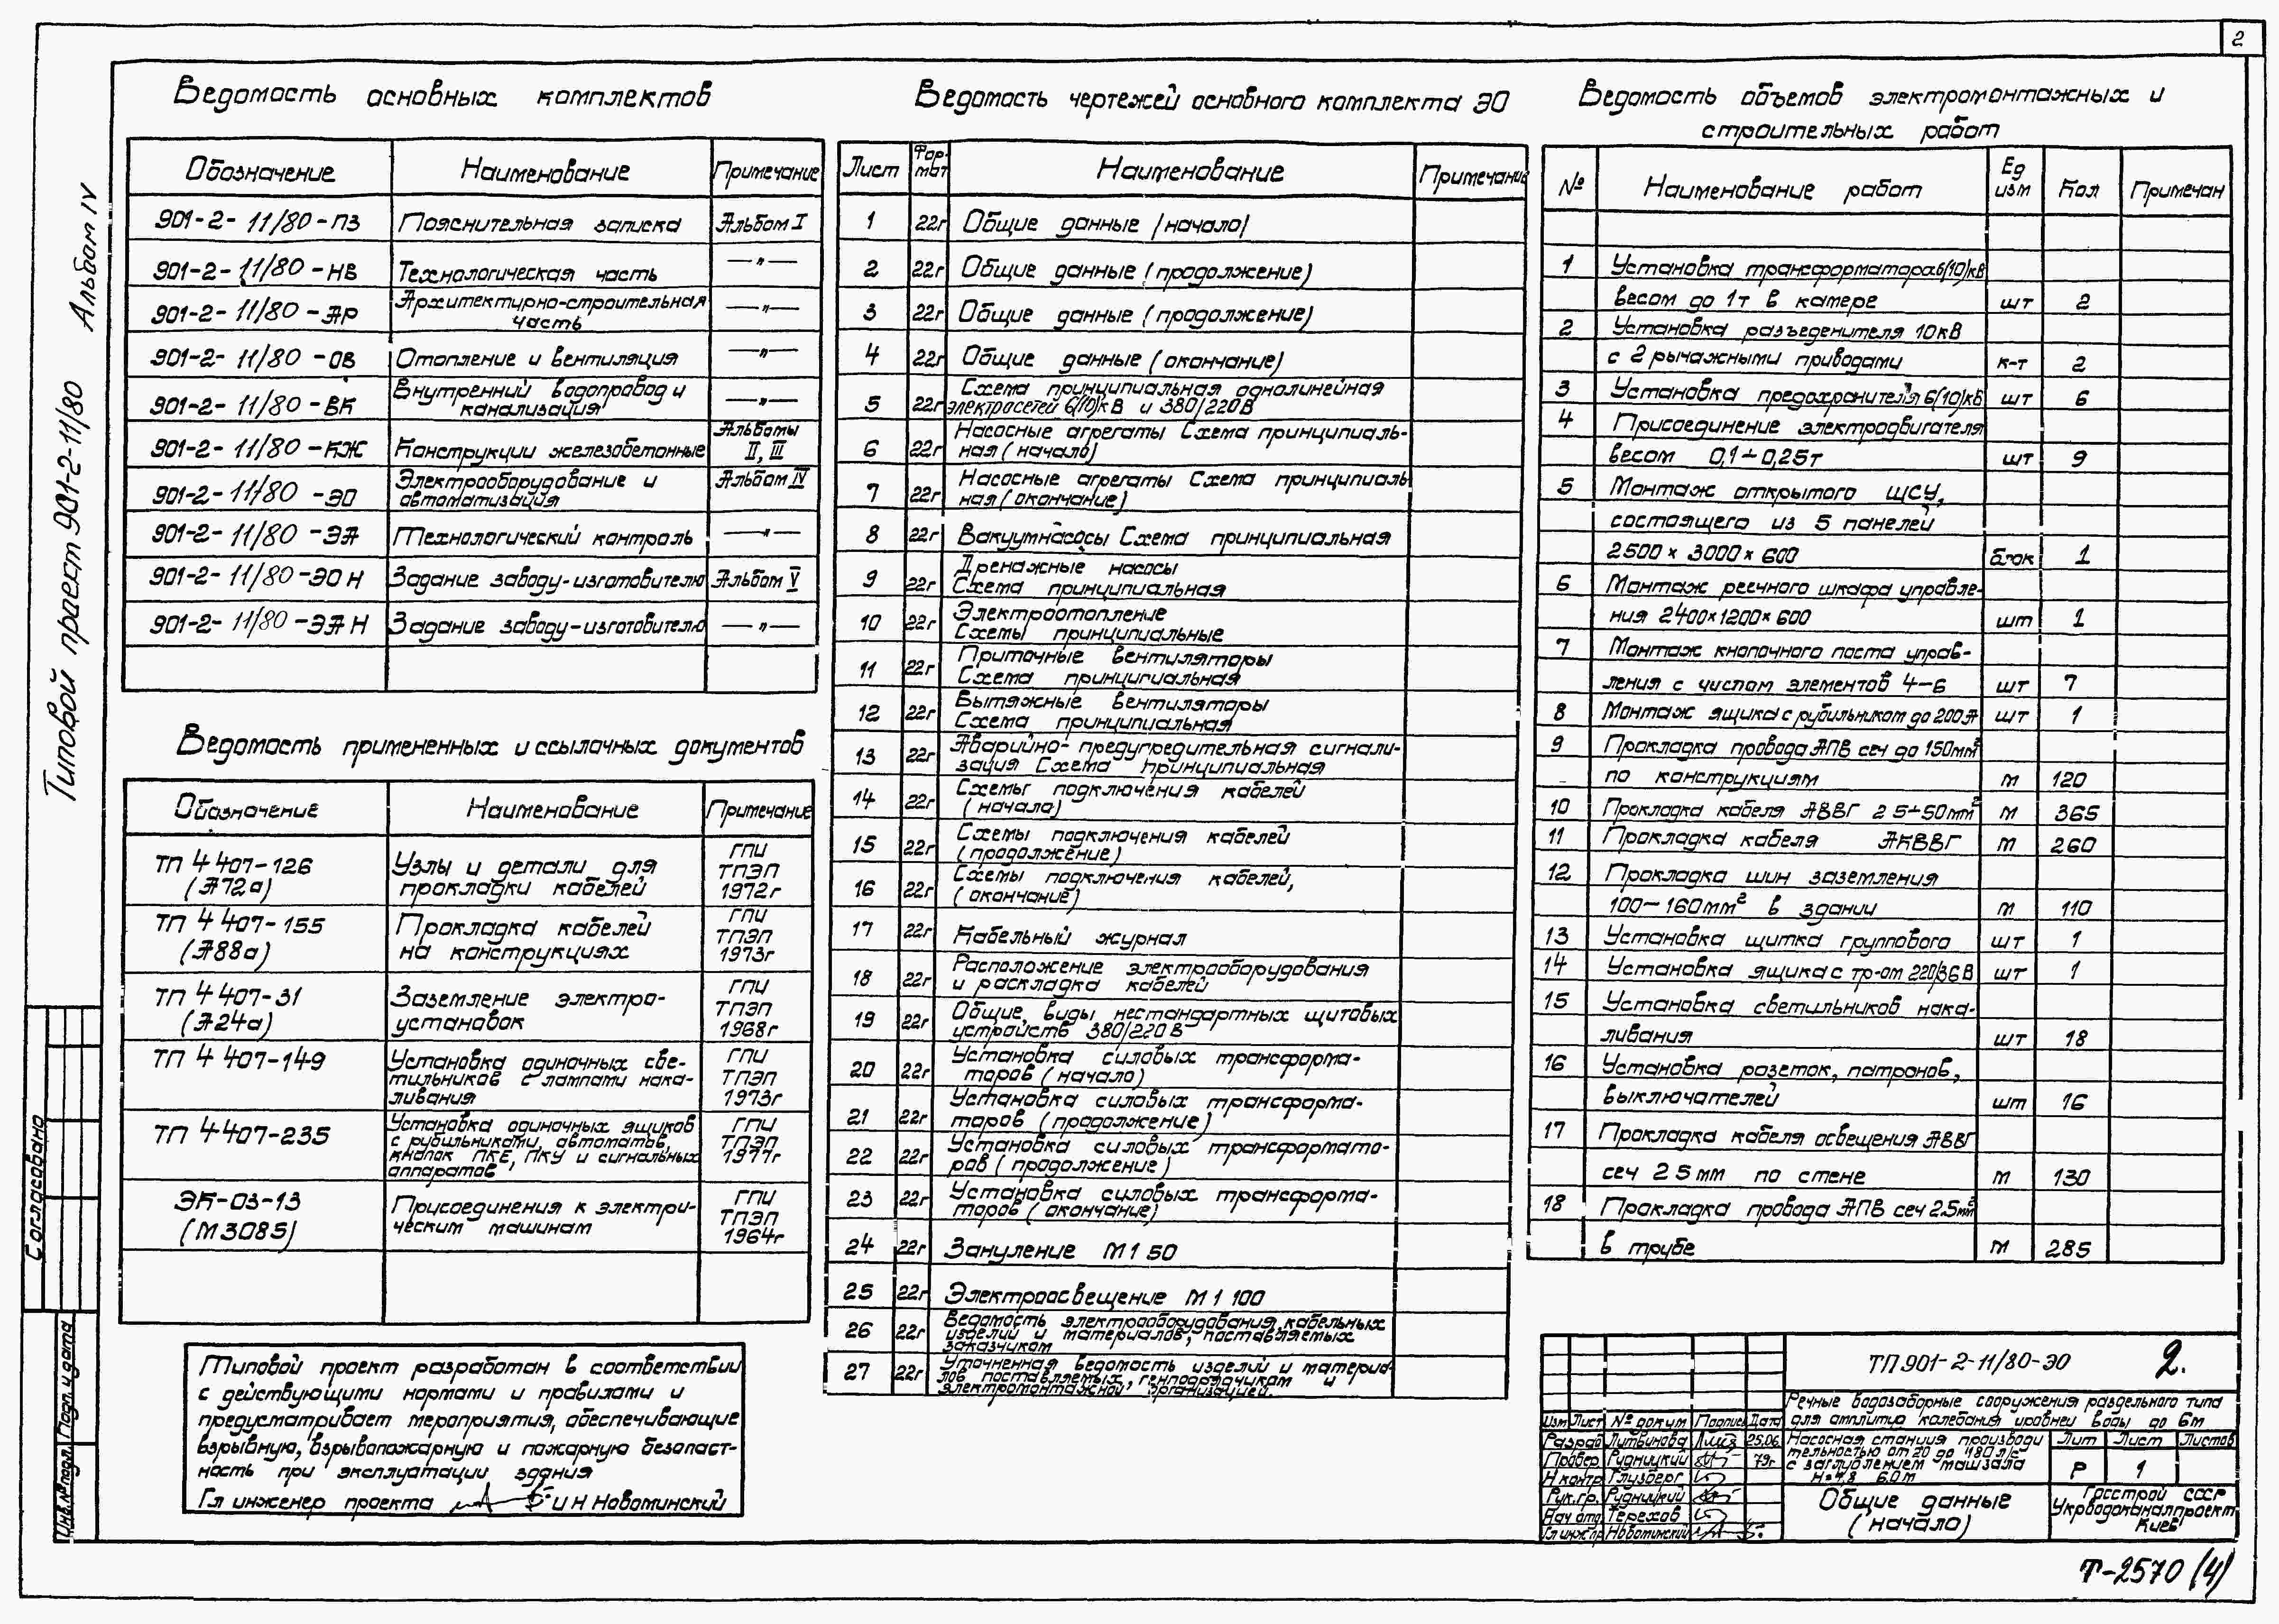 2
Типовой проект 901-2-11/80 Альбом IV
Ведомость основных комплектов
Обозначение Наименование Примечание
901-2-11/80-ПЗ Пояснительная записка Альбом I
901-2-11/80-НВ Технологическая часть —"—
901-2-11/80-АР Архитектурно-строительная часть —"—
901-2-11/80-ОВ Отопление и вентиляция —"—
901-2-11/80-ВК Внутренний водопровод и канализация —"—
901-2-11/80-КЖ Конструкции железобетонные Альбомы II, III
901-2-11/80-ЭО Электрооборудование и автоматизация Альбом IV
901-2-11/80-ЭА Технологический контроль —"—
901-2-11/80-ЭО Н Задание заводу-изготовителю Альбом V
901-2-11/80-ЭА Н Задание заводу-изготовителю —"—
Ведомость примененных и ссылочных документов
Обозначение Наименование Примечание
ТП 4 407-126 (А72а) Узлы и детали для прокладки кабелей ГПИ ТПЭП 1972г
ТП 4 407-155 (А88а) Прокладка кабелей на конструкциях ГПИ ТПЭП 1973г
ТП 4 407-31 (А24а) Заземление электро-установок ГПИ ТПЭП 1968г
ТП 4 407-149 Установка одиночных све-тильников с лампами нака-ливания ГПИ ТПЭП 1973г
ТП 4 407-235 Установка одиночных ящиков с рубильниками, автоматов, кнопок ПКЕ, ПКУ и сигнальных аппаратов ГПИ ТПЭП 1977г
ЭК-03-13 (М3085) Присоединения к электри-ческим машинам ГПИ ТПЭП 1964г
Типовой проект разработан в соответствии
с действующими нормами и правилами и
предусматривает мероприятия, обеспечивающие
взрывную, взрывопожарную и пожарную безопаст-
ность при эксплуатации здания
Гл инженер проекта И Н Новоминский
Ведомость чертежей основного комплекта ЭО
Лист Фор-мат Наименование Примечание
1 22г Общие данные (начало)
2 22г Общие данные (продолжение)
3 22г Общие данные (продолжение)
4 22г Общие данные (окончание)
5 22г Схема принципиальная однолинейная электросетей 6(10)кВ и 380/220В
6 22г Насосные агрегаты Схема принципиаль-ная (начало)
7 22г Насосные агрегаты Схема принципиаль-ная (окончание)
8 22г Вакуумнасосы Схема принципиальная
9 22г Дренажные насосы Схема принципиальная
10 22г Электроотопление Схемы принципиальные
11 22г Приточные вентиляторы Схема принципиальная
12 22г Вытяжные вентиляторы Схема принципиальная
13 22г Аварийно-предупредительная сигнали-зация Схема принципиальная
14 22г Схемы подключения кабелей (начало)
15 22г Схемы подключения кабелей (продолжение)
16 22г Схемы подключения кабелей, (окончание)
17 22г Кабельный журнал
18 22г Расположение электрооборудования и раскладка кабелей
19 22г Общие виды нестандартных щитовых устройств 380/220В
20 22г Установка силовых трансформа-торов (начало)
21 22г Установка силовых трансформа-торов (продолжение)
22 22г Установка силовых трансформато-ров (продолжение)
23 22г Установка силовых трансформа-торов (окончание)
24 22г Зануление М1 50
25 22г Электроосвещение М 1 100
26 22г Ведомость электрооборудования, кабельных изделий и материалов, поставляемых заказчиком
27 22г Уточненная ведомость изделий и материа-лов поставляемых генподрядчиком и электромонтажной организацией.
Ведомость объемов электромонтажных и
строительных работ
№ Наименование работ Ед изм Кол Примечан
1 Установка трансформатора 6(10)кВ
весом до 1т в камере шт 2
2 Установка разъеденителя 10кВ
с 2 рычажными приводами к-т 2
3 Установка предохранителя 6(10)кВ шт 6
4 Присоединение электродвигателя
весом 0,1÷0,25т шт 9
5 Монтаж открытого ЩСУ,
состоящего из 5 панелей
2500 × 3000 × 600 блок 1
6 Монтаж реечного шкафа управле-
ния 2400×1200×600 шт 1
7 Монтаж кнопочного поста управ-
ления с числом элементов 4-6 шт 7
8 Монтаж ящика с рубильником до 200А шт 1
9 Прокладка провода АПВ сеч до 150мм²
по конструкциям м 120
10 Прокладка кабеля АВВГ 2 5÷50мм² м 365
11 Прокладка кабеля АКВВГ м 260
12 Прокладка шин заземления
100-160мм² в здании м 110
13 Установка щитка группового шт 1
14 Установка ящика с тр-ом 220/36В шт 1
15 Установка светильников нака-
ливания шт 18
16 Установка розеток, патронов,
выключателей шт 16
17 Прокладка кабеля освещения АВВГ
сеч 2 5мм по стене м 130
18 Прокладка провода АПВ сеч 2.5мм²
в трубе м 285
Согласовано
Инв.№ подл. Подп. и дата
ТП 901-2-11/80-ЭО 2.
Речные водозаборные сооружения раздельного типа
для амплитуд колебания уровней воды до 6м
Изм Лист № докум Подпись Дата
Разраб Литвинова 25.06
Провер Рудницкий 79г
Н.контр Глузберг
Рук.гр. Рудницкий
Нач отд. Терехов
Гл инж пр Новоминский
Насосная станция производи
тельностью от 20 до 180 л/с
с заглублением машзала
Н=4,8 6.0м
Лит Лист Листов
Р 1
Общие данные
(начало)
Госстрой СССР
Укрводоканалпроект
Киев
Т-2570 (4)